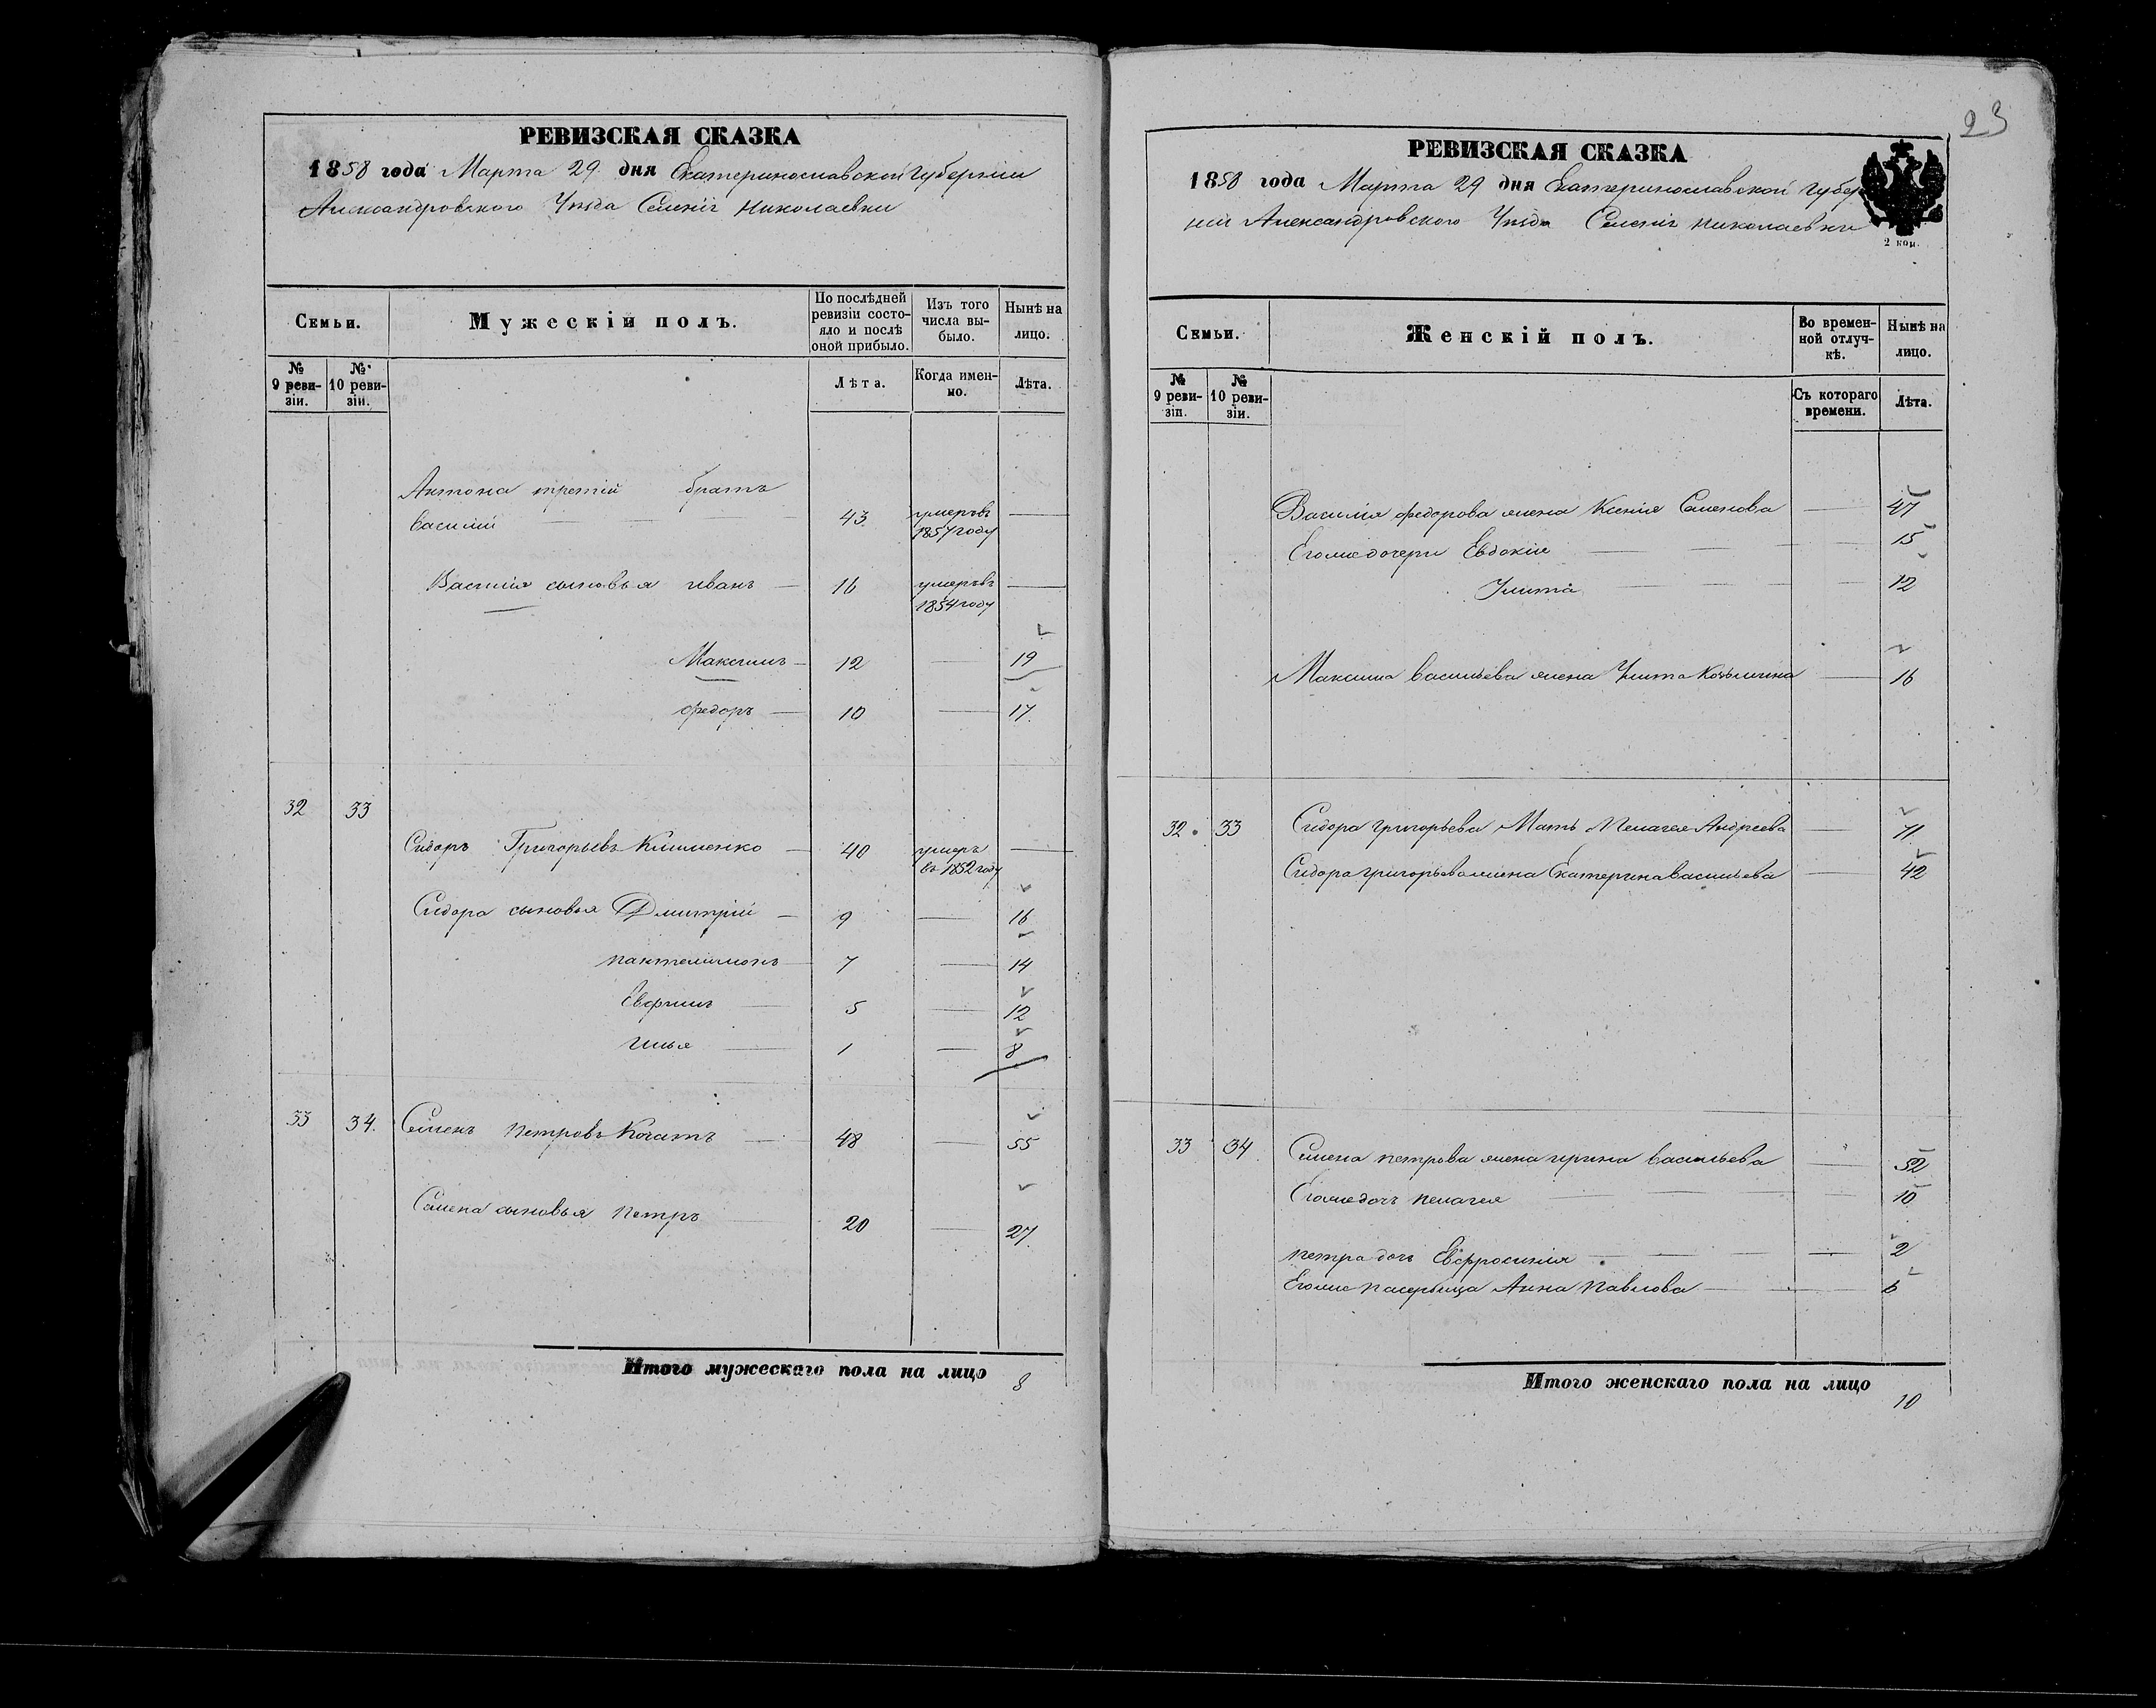 РЕВИЗСКАЯ СКАЗКА
1858 года Марта 29 дня Екатеринославской Губерніи
Александровского Уезда Селенія Николаевки
Семьи.
Мужескій полъ.
По послѣдней ревизіи состояло и послѣ оной прибыло.
Изъ того числа выбыло.
Нынѣ на лицо.
№ 9 ревизіи.
№ 10 ревизіи.
Лѣта.
Когда именно.
Лѣта.
Антона третій братъ
Василій 43 умеръ въ
1857 году
Василія сыновья иванъ 16 умеръ въ
1854 году
Максимъ 12 19
федоръ 10 17.
32 33
Сидоръ Григорьевъ Клименко 40 умеръ
въ 1852 году
Сидора сыновья Дмитрій 9 16
пантелимонъ 7 14
Евфимъ 5 12
илья 1 8
33 34. Семенъ петровъ Кочатъ 48 55
Семена сыновья петръ 20 27.
Итого мужескаго пола на лицо 8
23
РЕВИЗСКАЯ СКАЗКА
1858 года Марта 29 дня Екатеринославской Губер
ніи Александровского Уезда Селенія николаевки
2 коп.
Семьи.
Женскій полъ.
Во временной отлучкѣ.
Нынѣ на лицо.
№ 9 ревизіи.
№ 10 ревизіи.
Съ котораго времени.
Лѣта.
Василія федорова жена Ксенія Семенова 47
Егоже дочери Евдокія 15
Улита 12
Максима васильева жена Улита Козьмина 16
32. 33 Сидора григорьева Мать Пелагея Андреева 71
Сидора григорьева жена Екатерина васильева 42
33 34. Семена петрова жена ирина васильева 52
Егоже дочь пелагея 10
петра дочь Евфросинія 2
Егоже падчерица Анна павлова 6
Итого женскаго пола на лицо 10